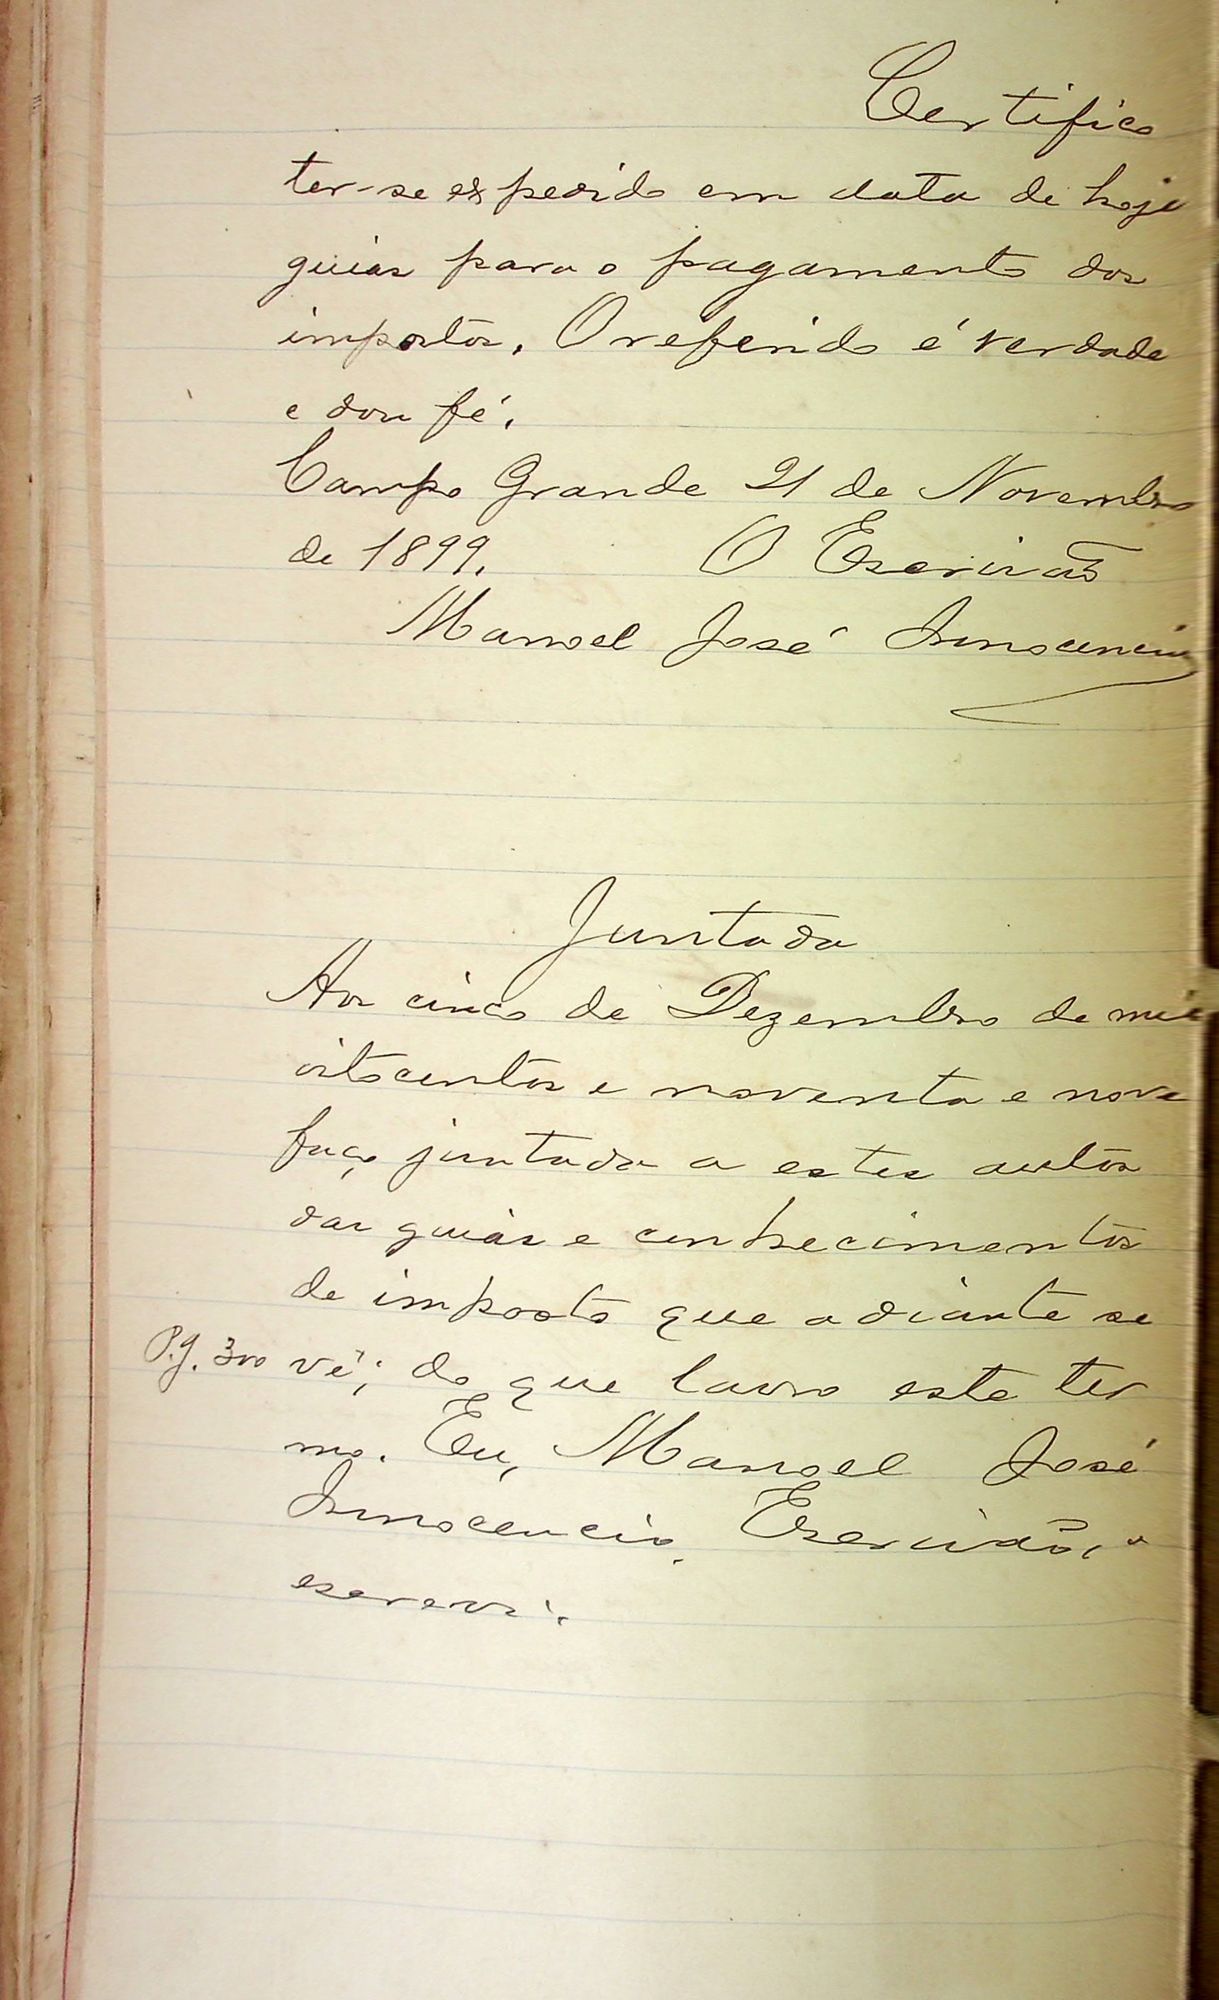 Certifico
ter-se expedido em data de hoje
guias para o pagamento dos
impostos. O referido é verdade
e dou fé.
Campo Grande 21 de Novembro
de 1899. O Escrivão
Manoel José Innocencio
Juntada
Aos cinco de Dezembro de mil
oitocentos e noventa e nove
faço juntada a estes autos
das guias e conhecimentos
de imposto que adiante se
P.g. 300 vê; do que lavro este ter
mo. Eu, Manoel José
Innocencio, Escrivão, o
escrevi.